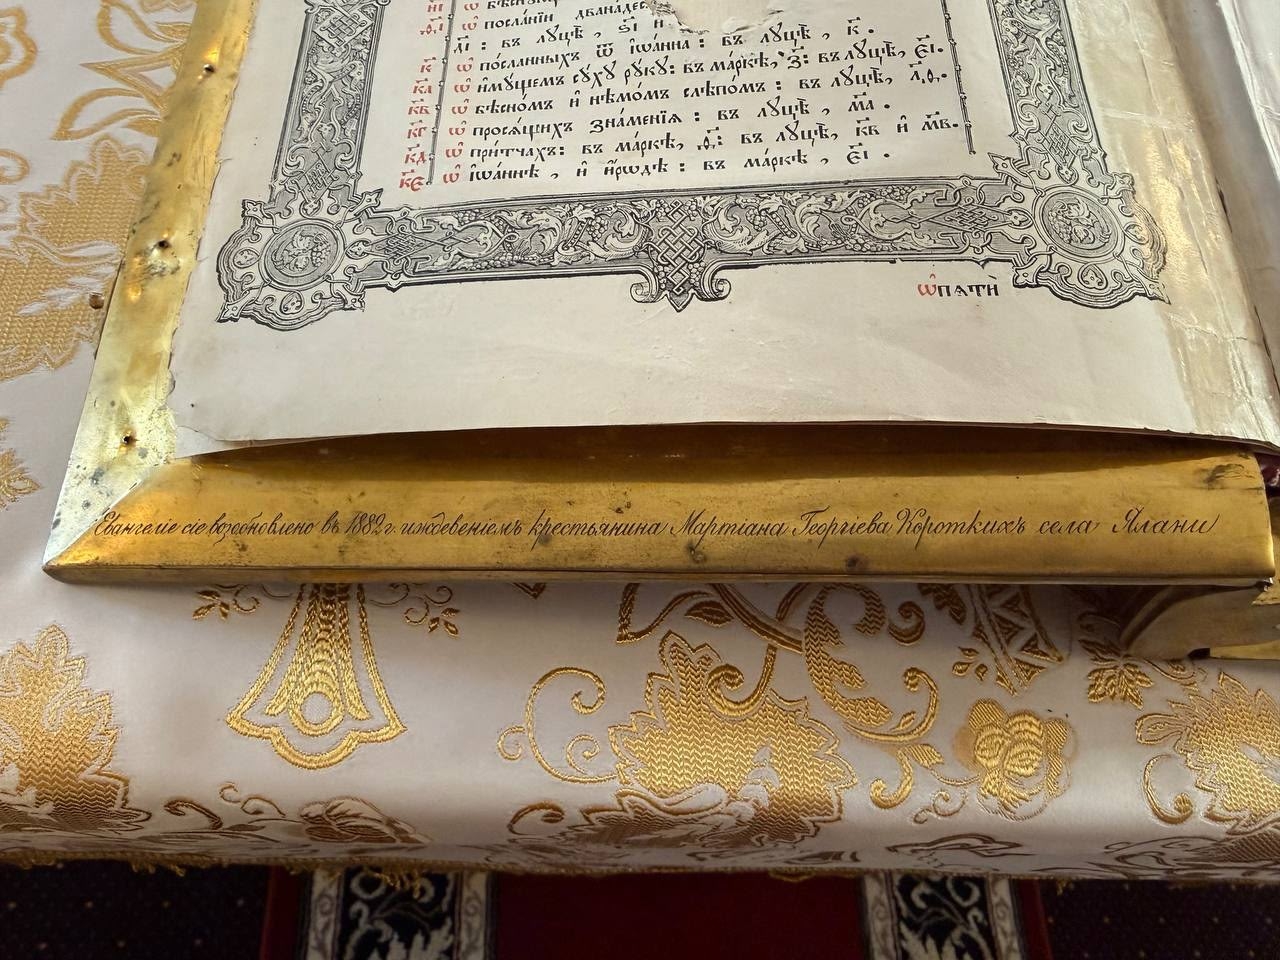 ѿ посла́нїи дванадес
д҃і : въ лꙋцѣ̀, ѕ҃і и
к҃ ѡ҆ по́сланныхъ ѿ і҆ѡа́нна : въ лꙋцѣ̀ , к҃ .
к҃а ѡ҆ и҆мꙋ́щемъ сꙋ́хꙋ рꙋ́кꙋ : въ ма́ркѣ, з҃ : въ лꙋцѣ̀, є҃і .
к҃в ѡ҆ бѣсно́мъ и҆ нѣмо́мъ слѣпо́мъ : въ лꙋцѣ̀, л҃ѳ .
к҃г ѡ҆ прося́щихъ зна́менїѧ : въ лꙋцѣ̀, м҃а .
к҃д ѡ҆ при́тчахъ : въ ма́ркѣ, ѳ҃ : въ лꙋцѣ̀, к҃в и҆ м҃в .
к҃є ѡ҆ і҆ѡа́ннѣ , и҆ и҆́рѡдѣ : въ ма́ркѣ , є҃і .
ѡ҆ пѧтѝ
Евангеліе сіе возобновлено въ 1882 г. иждевеніемъ крестьянина Мартіана Георгіева Коротких села Ялани